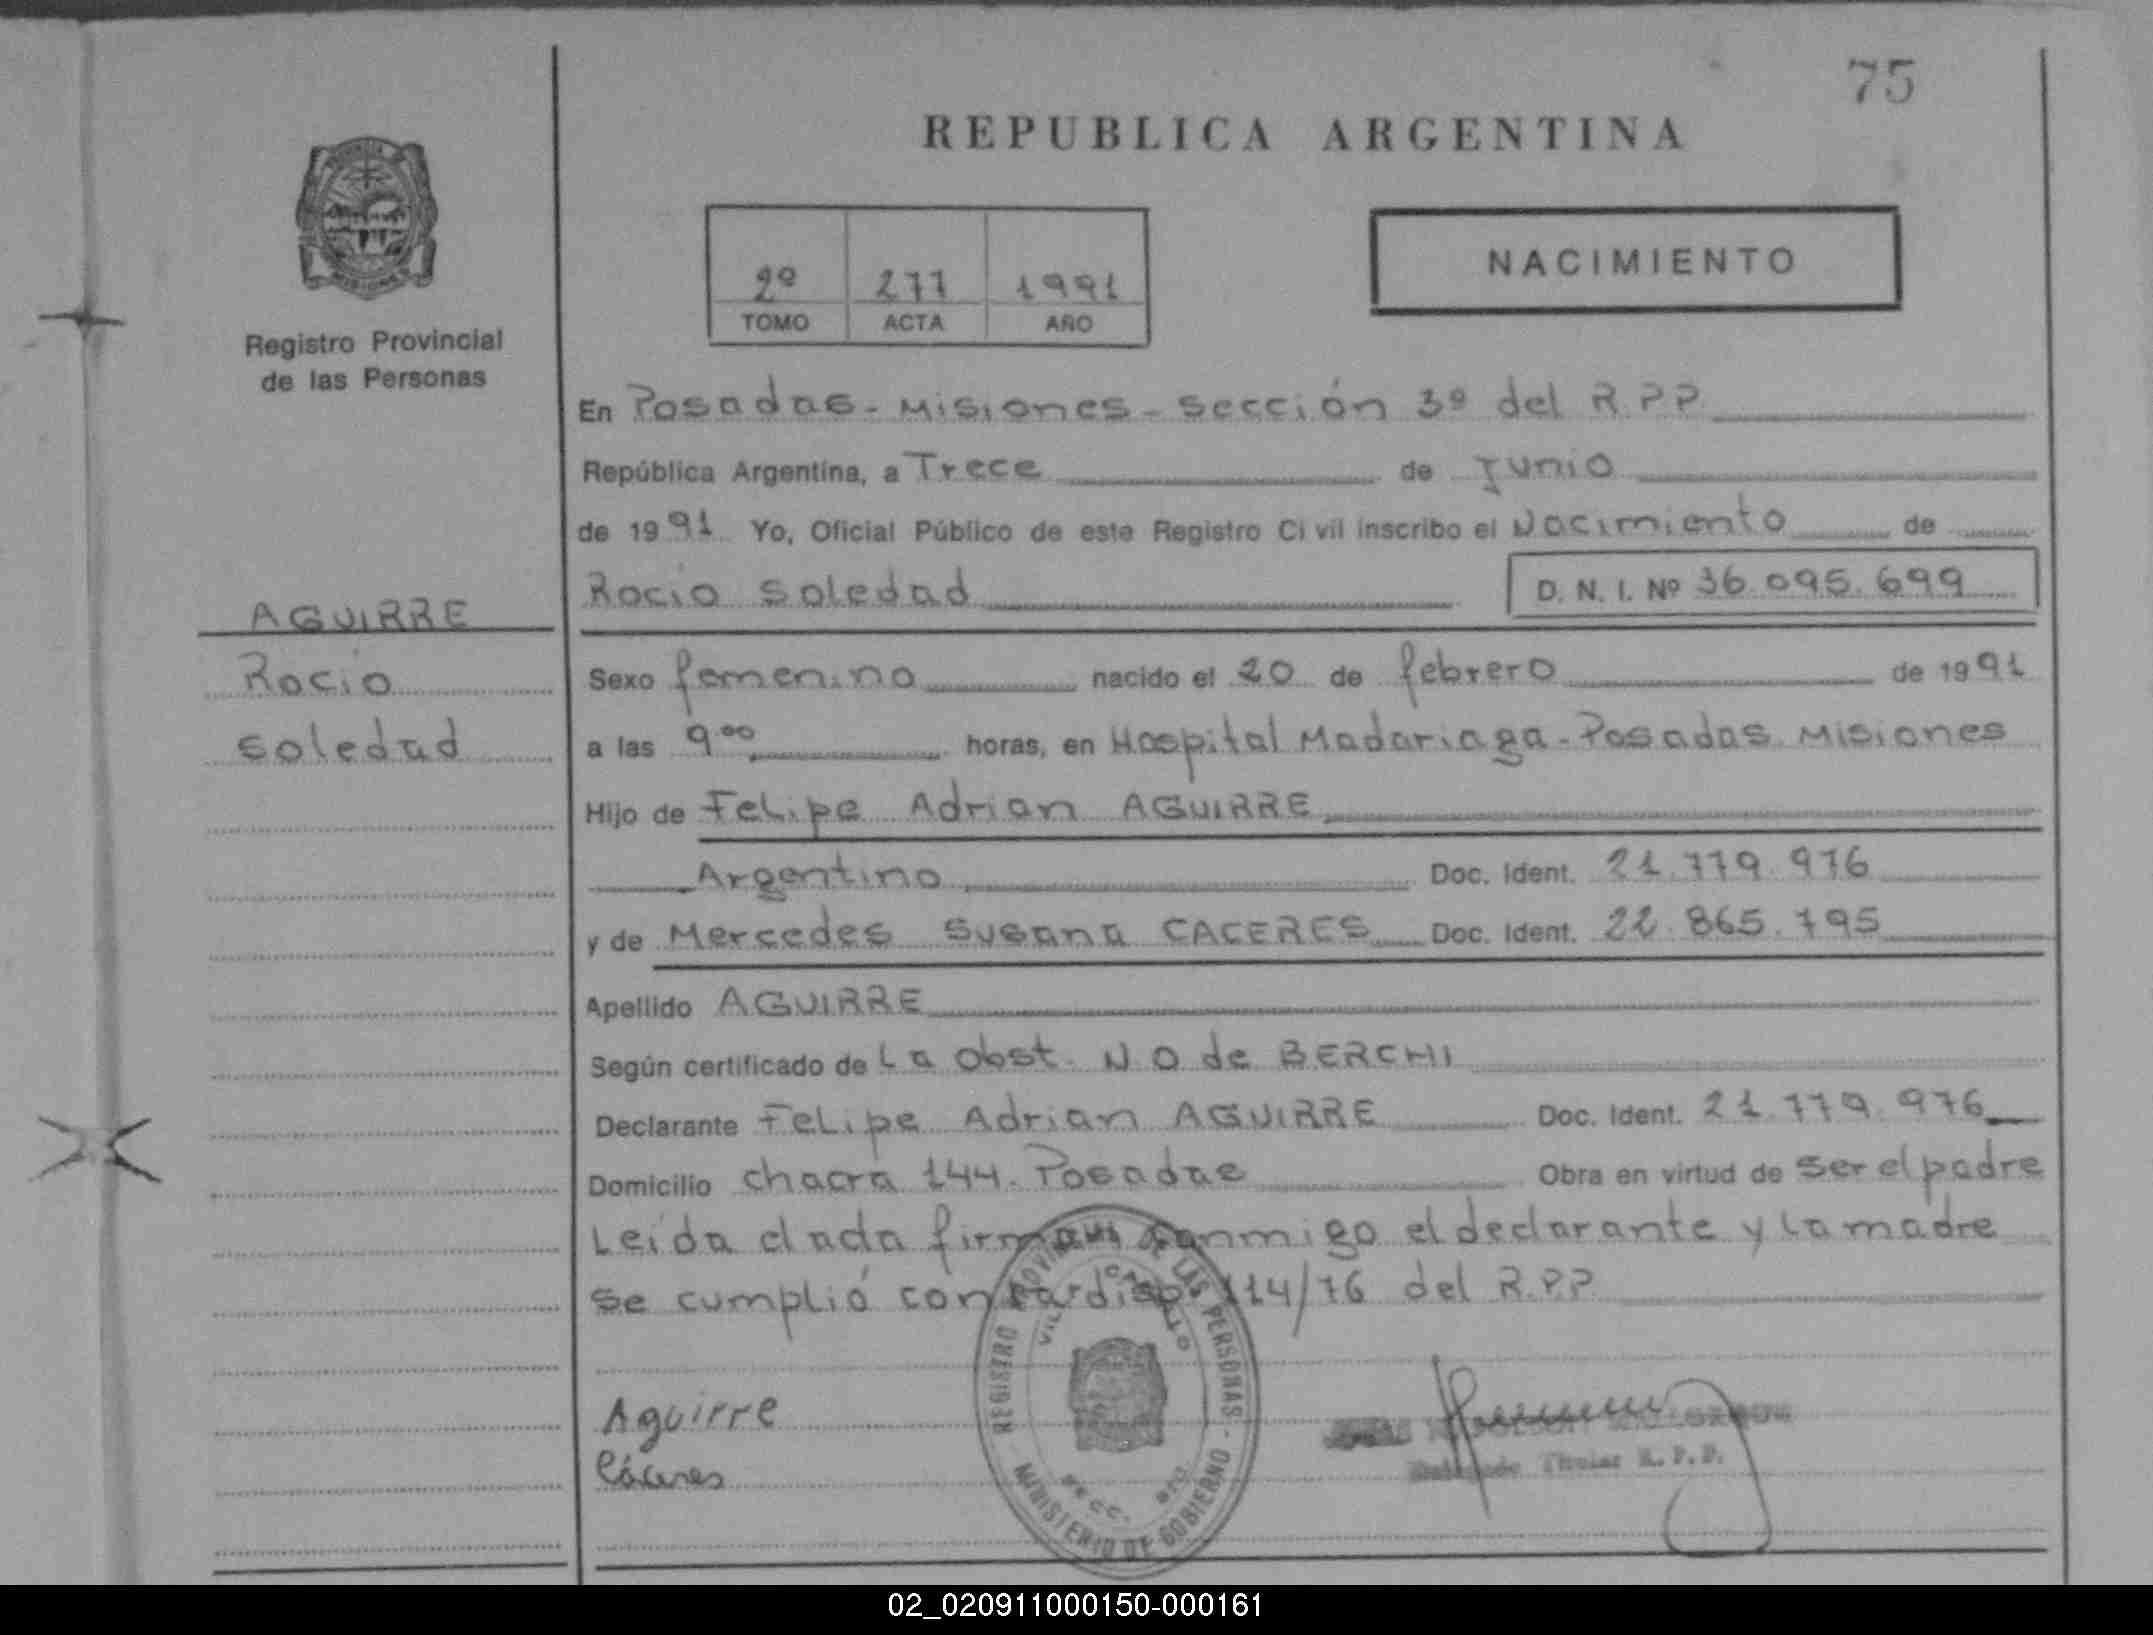 75
REPUBLICA ARGENTINA
2º 277 1991
TOMO ACTA AÑO
NACIMIENTO
Registro Provincial
de las Personas
En Posadas - Misiones - Sección 3º del R.P.P.
República Argentina, a Trece de Junio
de 1991 Yo, Oficial Público de este Registro Civil inscribo el Nacimiento de
Rocio Soledad D. N. I. Nº 36.095.699
AGUIRRE
Rocio
Soledad
Sexo femenino nacido el 20 de febrero de 1991
a las 9 00 horas, en Hospital Madariaga - Posadas Misiones
Hijo de Felipe Adrian AGUIRRE
Argentino Doc. Ident. 21.779.976
y de Mercedes Susana CACERES Doc. Ident. 22.865.795
Apellido AGUIRRE
Según certificado de La Obst. N O de BERCHI
Declarante Felipe Adrian AGUIRRE Doc. Ident. 21.779.976
Domicilio chacra 144. Posadas Obra en virtud de ser el padre
Leida el acta firman conmigo el declarante y la madre
se cumplió con 114/76 del R.P.P.
Aguirre
Cáceres
REGISTRO PROVINCIAL DE LAS PERSONAS - MINISTERIO DE GOBIERNO
Titular R. P. P.
02_020911000150-000161